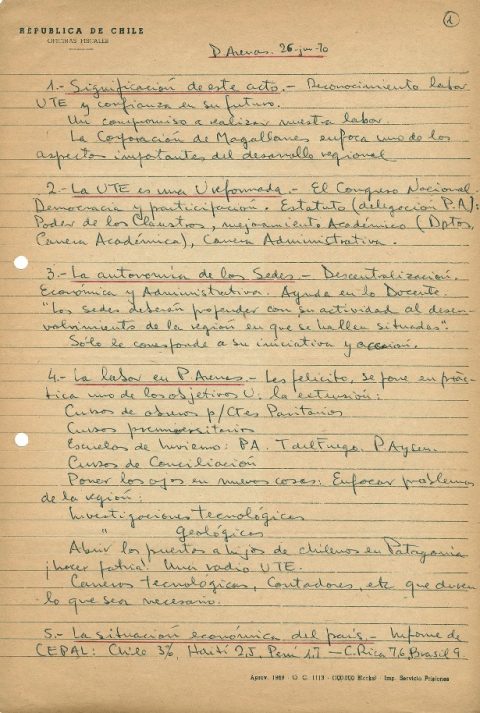 1
REPUBLICA DE CHILE
OFICINAS FISCALES
P. Arenas. 26-jun-70
1.- Significación de este acto.- Reconocimiento labor
UTE y confianza en su futuro.
Un compromiso a realizar nuestra labor.
La Corporación de Magallanes enfoca uno de los
aspectos importantes del desarrollo regional
2.- La UTE es una U reformada.- El Congreso Nacional.
Democracia y participación. Estatuto (delegación P.A):
Poder de los Claustros, mejoramiento Académico (Dptos,
Carrera Académica), Carrera Administrativa.
3.- La autonomía de las Sedes.- Descentralización.
Económica y Administrativa. Ayuda en lo Docente.
"Las sedes deberán propender con su actividad al desen-
volvimiento de la región en que se hallen situadas".
Sólo le corresponde a su iniciativa y acción.
4.- La labor en P. Arenas.- Les felicito, se pone en prác-
tica uno de los objetivos U. la extensión:
Cursos de obreros p/Ctes Paritarios
Cursos preuniversitarios
Escuelas de Invierno: PA. T del Fuego. P Aysen.
Cursos de Conciliación
Poner los ojos en nuevas cosas: Enfocar problemas
de la región:
Investigaciones Tecnológicas
" Geológicas
Abrir las puertas a hijos de chilenos en Patagonia
¡hacer patria! Una radio UTE.
Carreras Tecnológicas, Contadores, etc que duren
lo que sea necesario.
5.- La situación económica del país.- Informe de
CEPAL: Chile 3%, Haití 2,5, Perú 1,7 — C. Rica 7,6, Brasil 9.
Aprov. 1969 - O. C. 1113 - (100.000 Blocks) - Imp. Servicio Prisiones